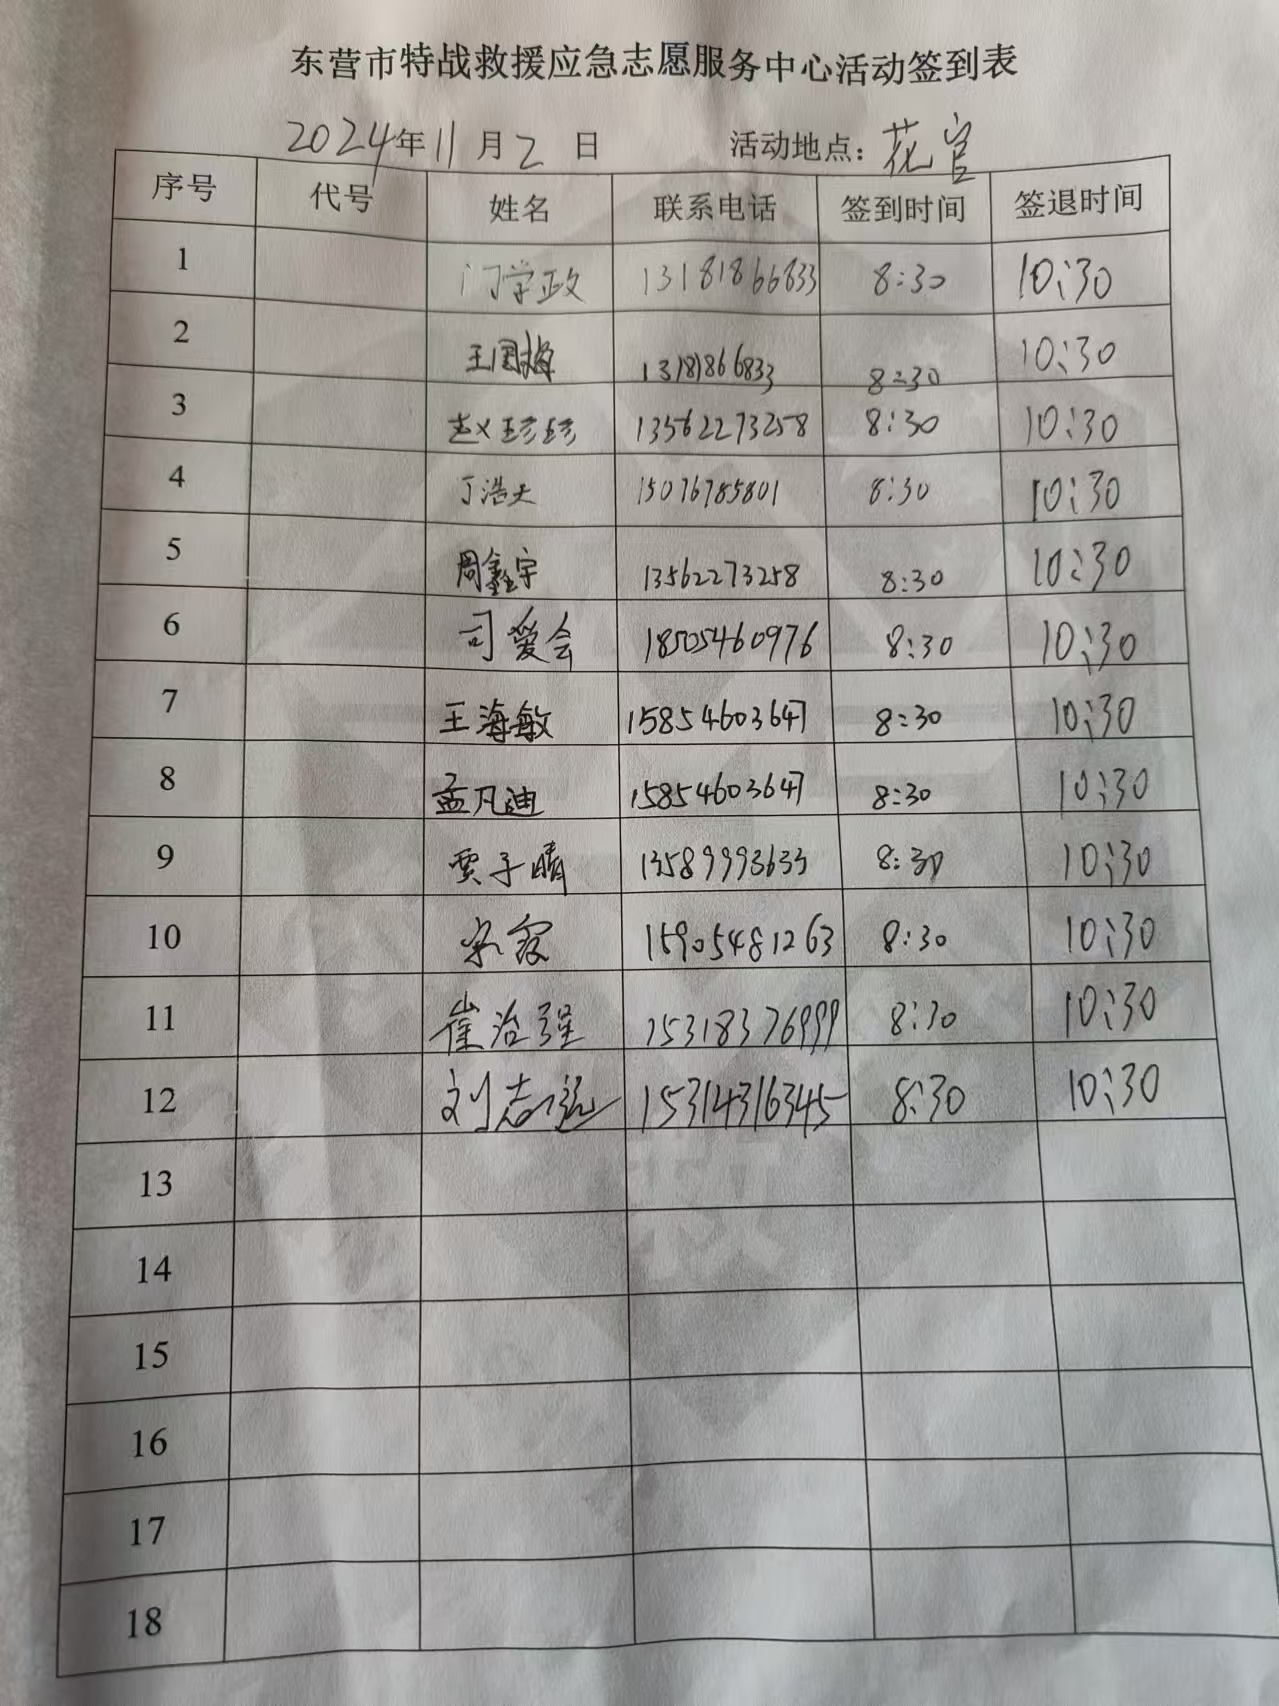 东营市特战救援应急志愿服务中心活动签到表
2024年11月2日 活动地点：花官
序号 代号 姓名 联系电话 签到时间 签退时间
1 门学政 13181866833 8:30 10:30
2 王国 13181866833 8:30 10:30
3 赵珍珍 13562273258 8:30 10:30
4 丁浩天 15076785801 8:30 10:30
5 周鑫宇 13562273258 8:30 10:30
6 司爱会 18505460976 8:30 10:30
7 王海敏 15854603647 8:30 10:30
8 孟凡迪 15854603647 8:30 10:30
9 贾子晴 13589993633 8:30 10:30
10 15905481263 8:30 10:30
11 崔治强 15318376999 8:30 10:30
12 刘志远 15314316345 8:30 10:30
13
14
15
16
17
18